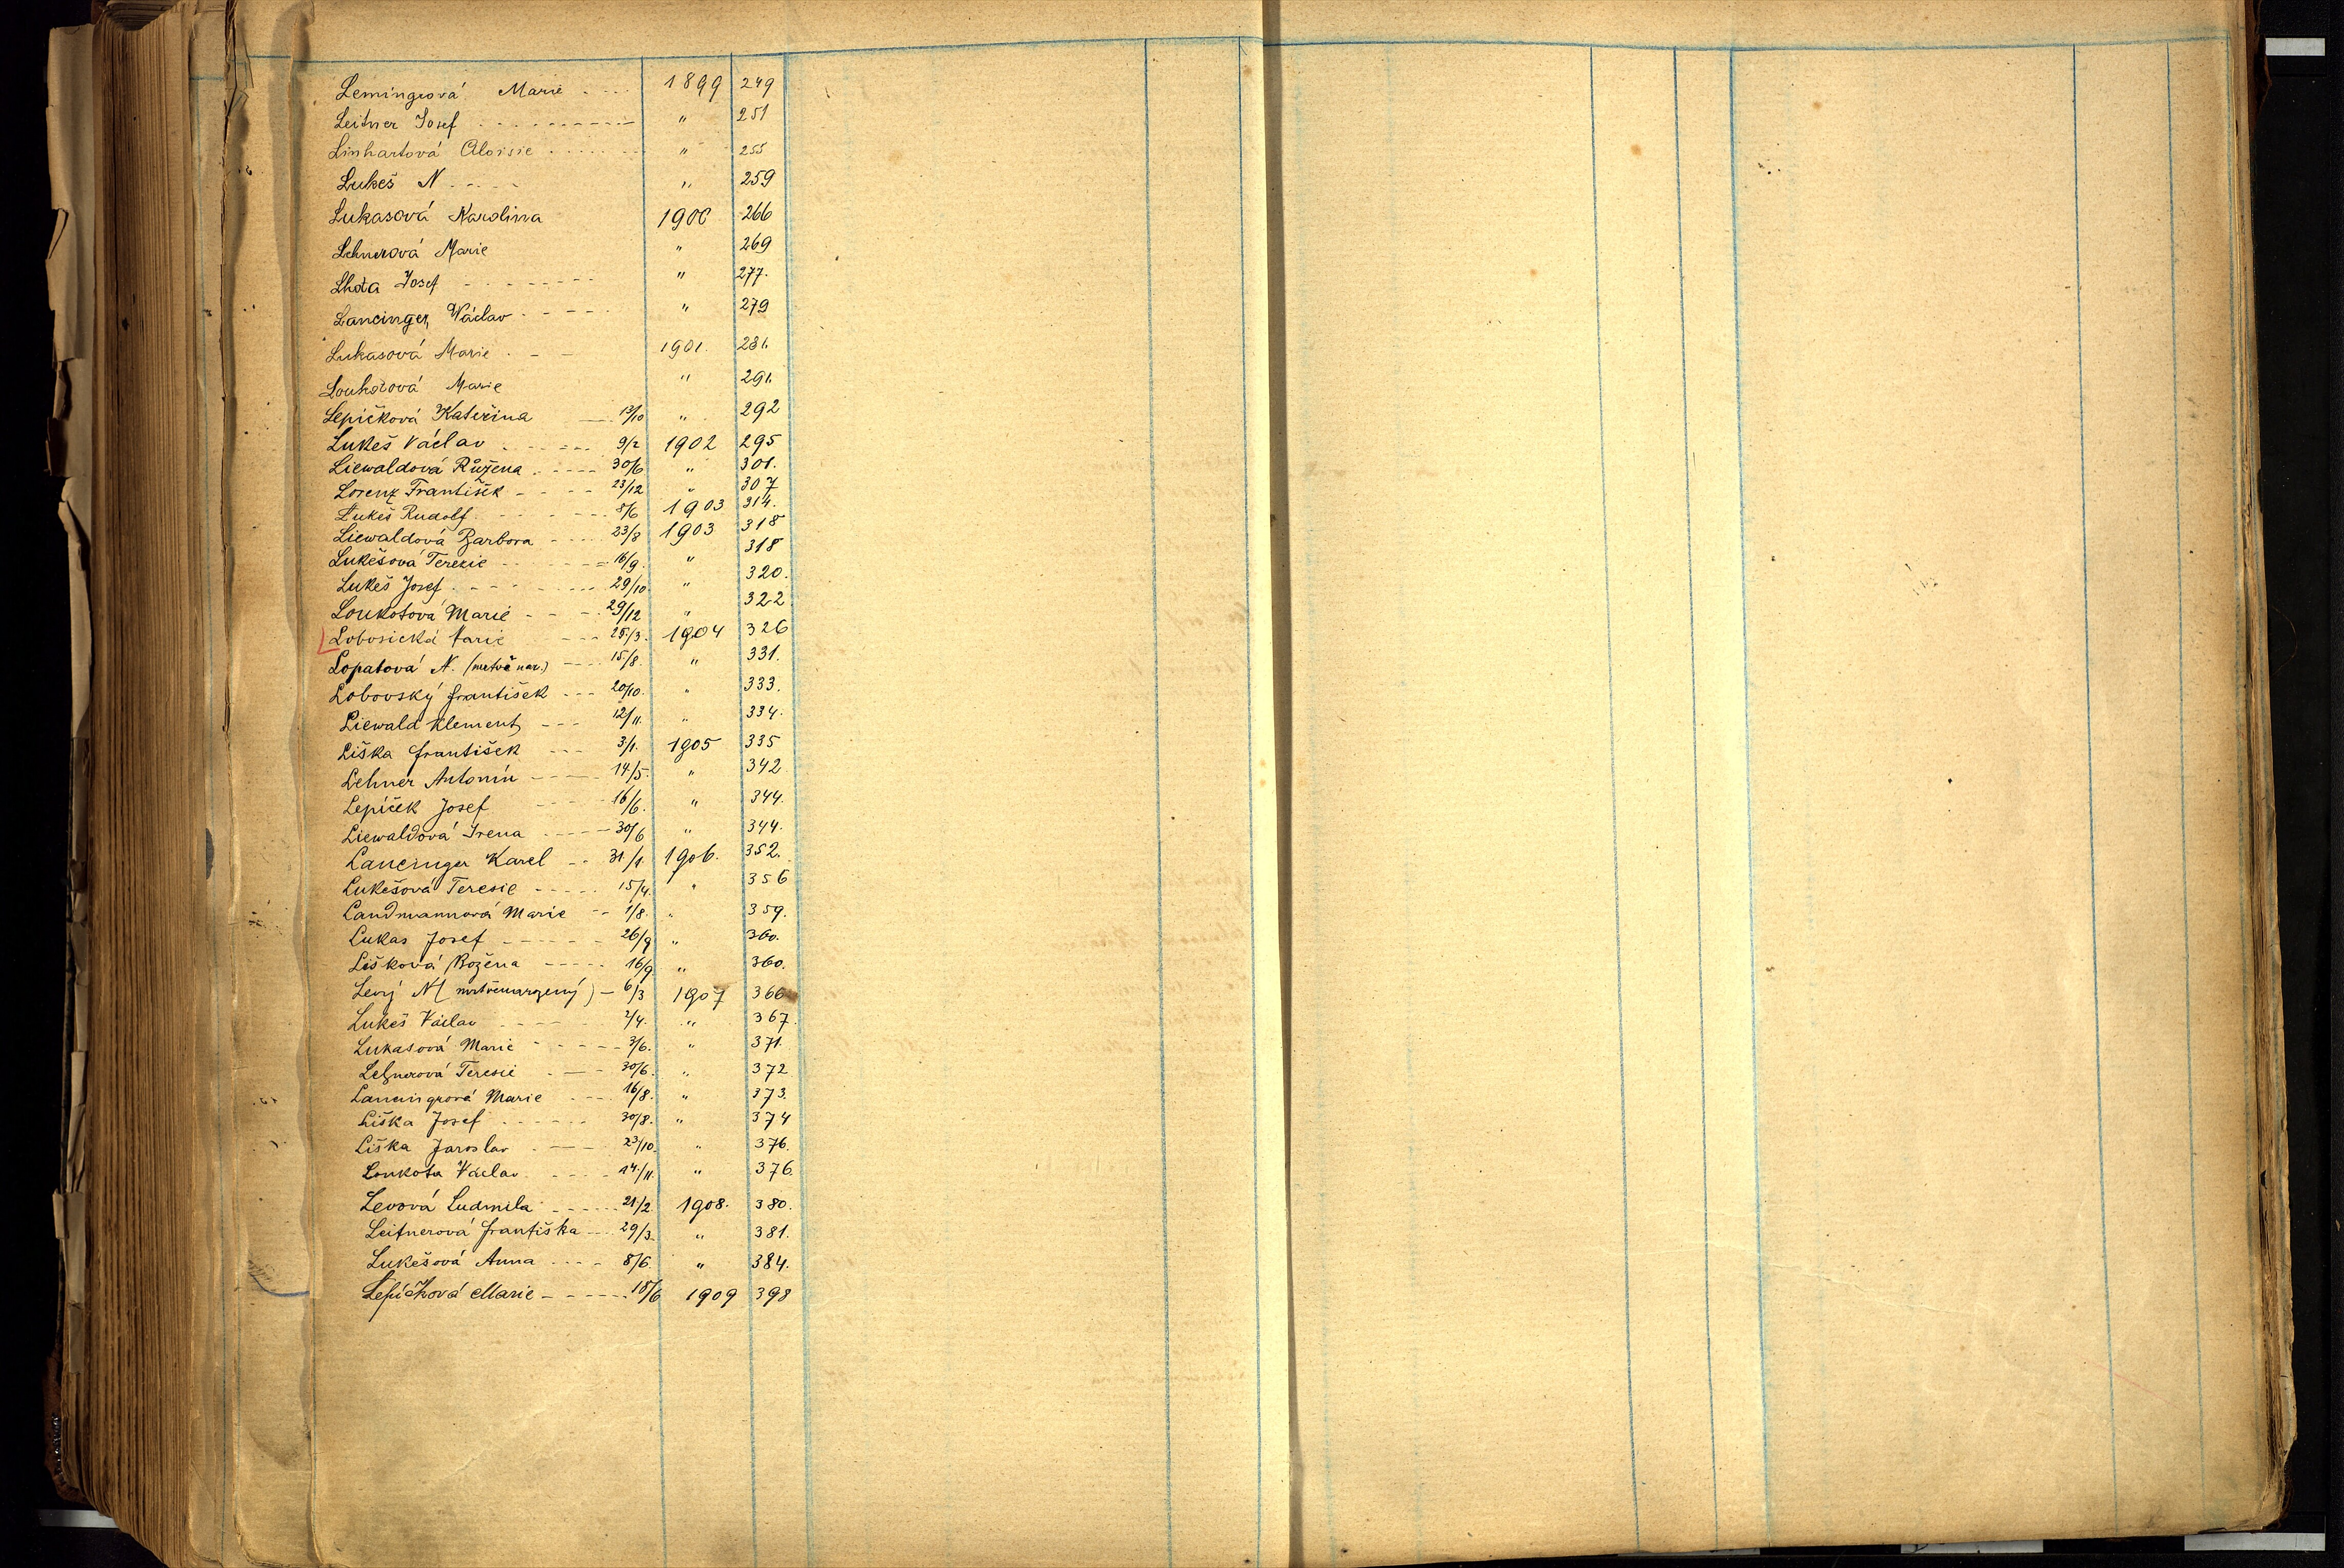 Lemingrová Marie 1899 249
Leitner Josef " 251
Linhartová Aloisie " 255
Lukeš N " 259
Lukasová Karolina 1900 266
Lehnerová Marie " 269
Lhota Josef " 277.
Lancinger Václav " 279
Lukasová Marie 1901. 281.
Marie " 291.
Lepičková Kateřina " 292
Lukeš Václav 9/2 1902 295
Liewaldová Růžena 30/6 " 301.
Lorenz František 23/12 " 307
Lukeš Rudolf 8/6 1903 314.
Liewaldová Barbora 23/8 1903 318
Lukešová Terezie 16/9. " 318
Lukeš Josef 29/10 " 320.
Loukotová Marie 29/12 " 322
Lobosická Marie 25/3. 1904 326
Lopatová N. (mrtvě nar.) 15/8. " 331.
Lobovský František 20/10. " 333.
Liewald Klement 12/11. " 334.
Liška František 3/1. 1905 335
Lehner Antonín 14/5. " 342
Lepíček Josef 16/6. " 344.
Liewaldová Irena 30/6 " 344.
Lancinger Karel 31/1. 1906. 352.
Lukešová Teresie 15/4. " 356
Landmannová Marie 1/8. " 359.
Lukas Josef 26/9 " 360.
Lišková Božena 16/9 " 360.
Levý N (mrtvěnarzený) 6/3 1907 366
Lukeš Václav 2/4. " 367.
Lukasová Marie 3/6. " 371.
Lehnerová Teresie 30/6. " 372
Lancingrová Marie 16/8. " 373.
Liška Josef 30/8. " 374
Liška Jaroslav 23/10. " 376.
Loukota Václav 14/11. " 376.
Levová Ludmila 21/2 1908. 380.
Leitnerová Františka 29/3. " 381.
Lukešová Anna 8/6. " 384.
Lepíčková Marie 18/6 1909 398